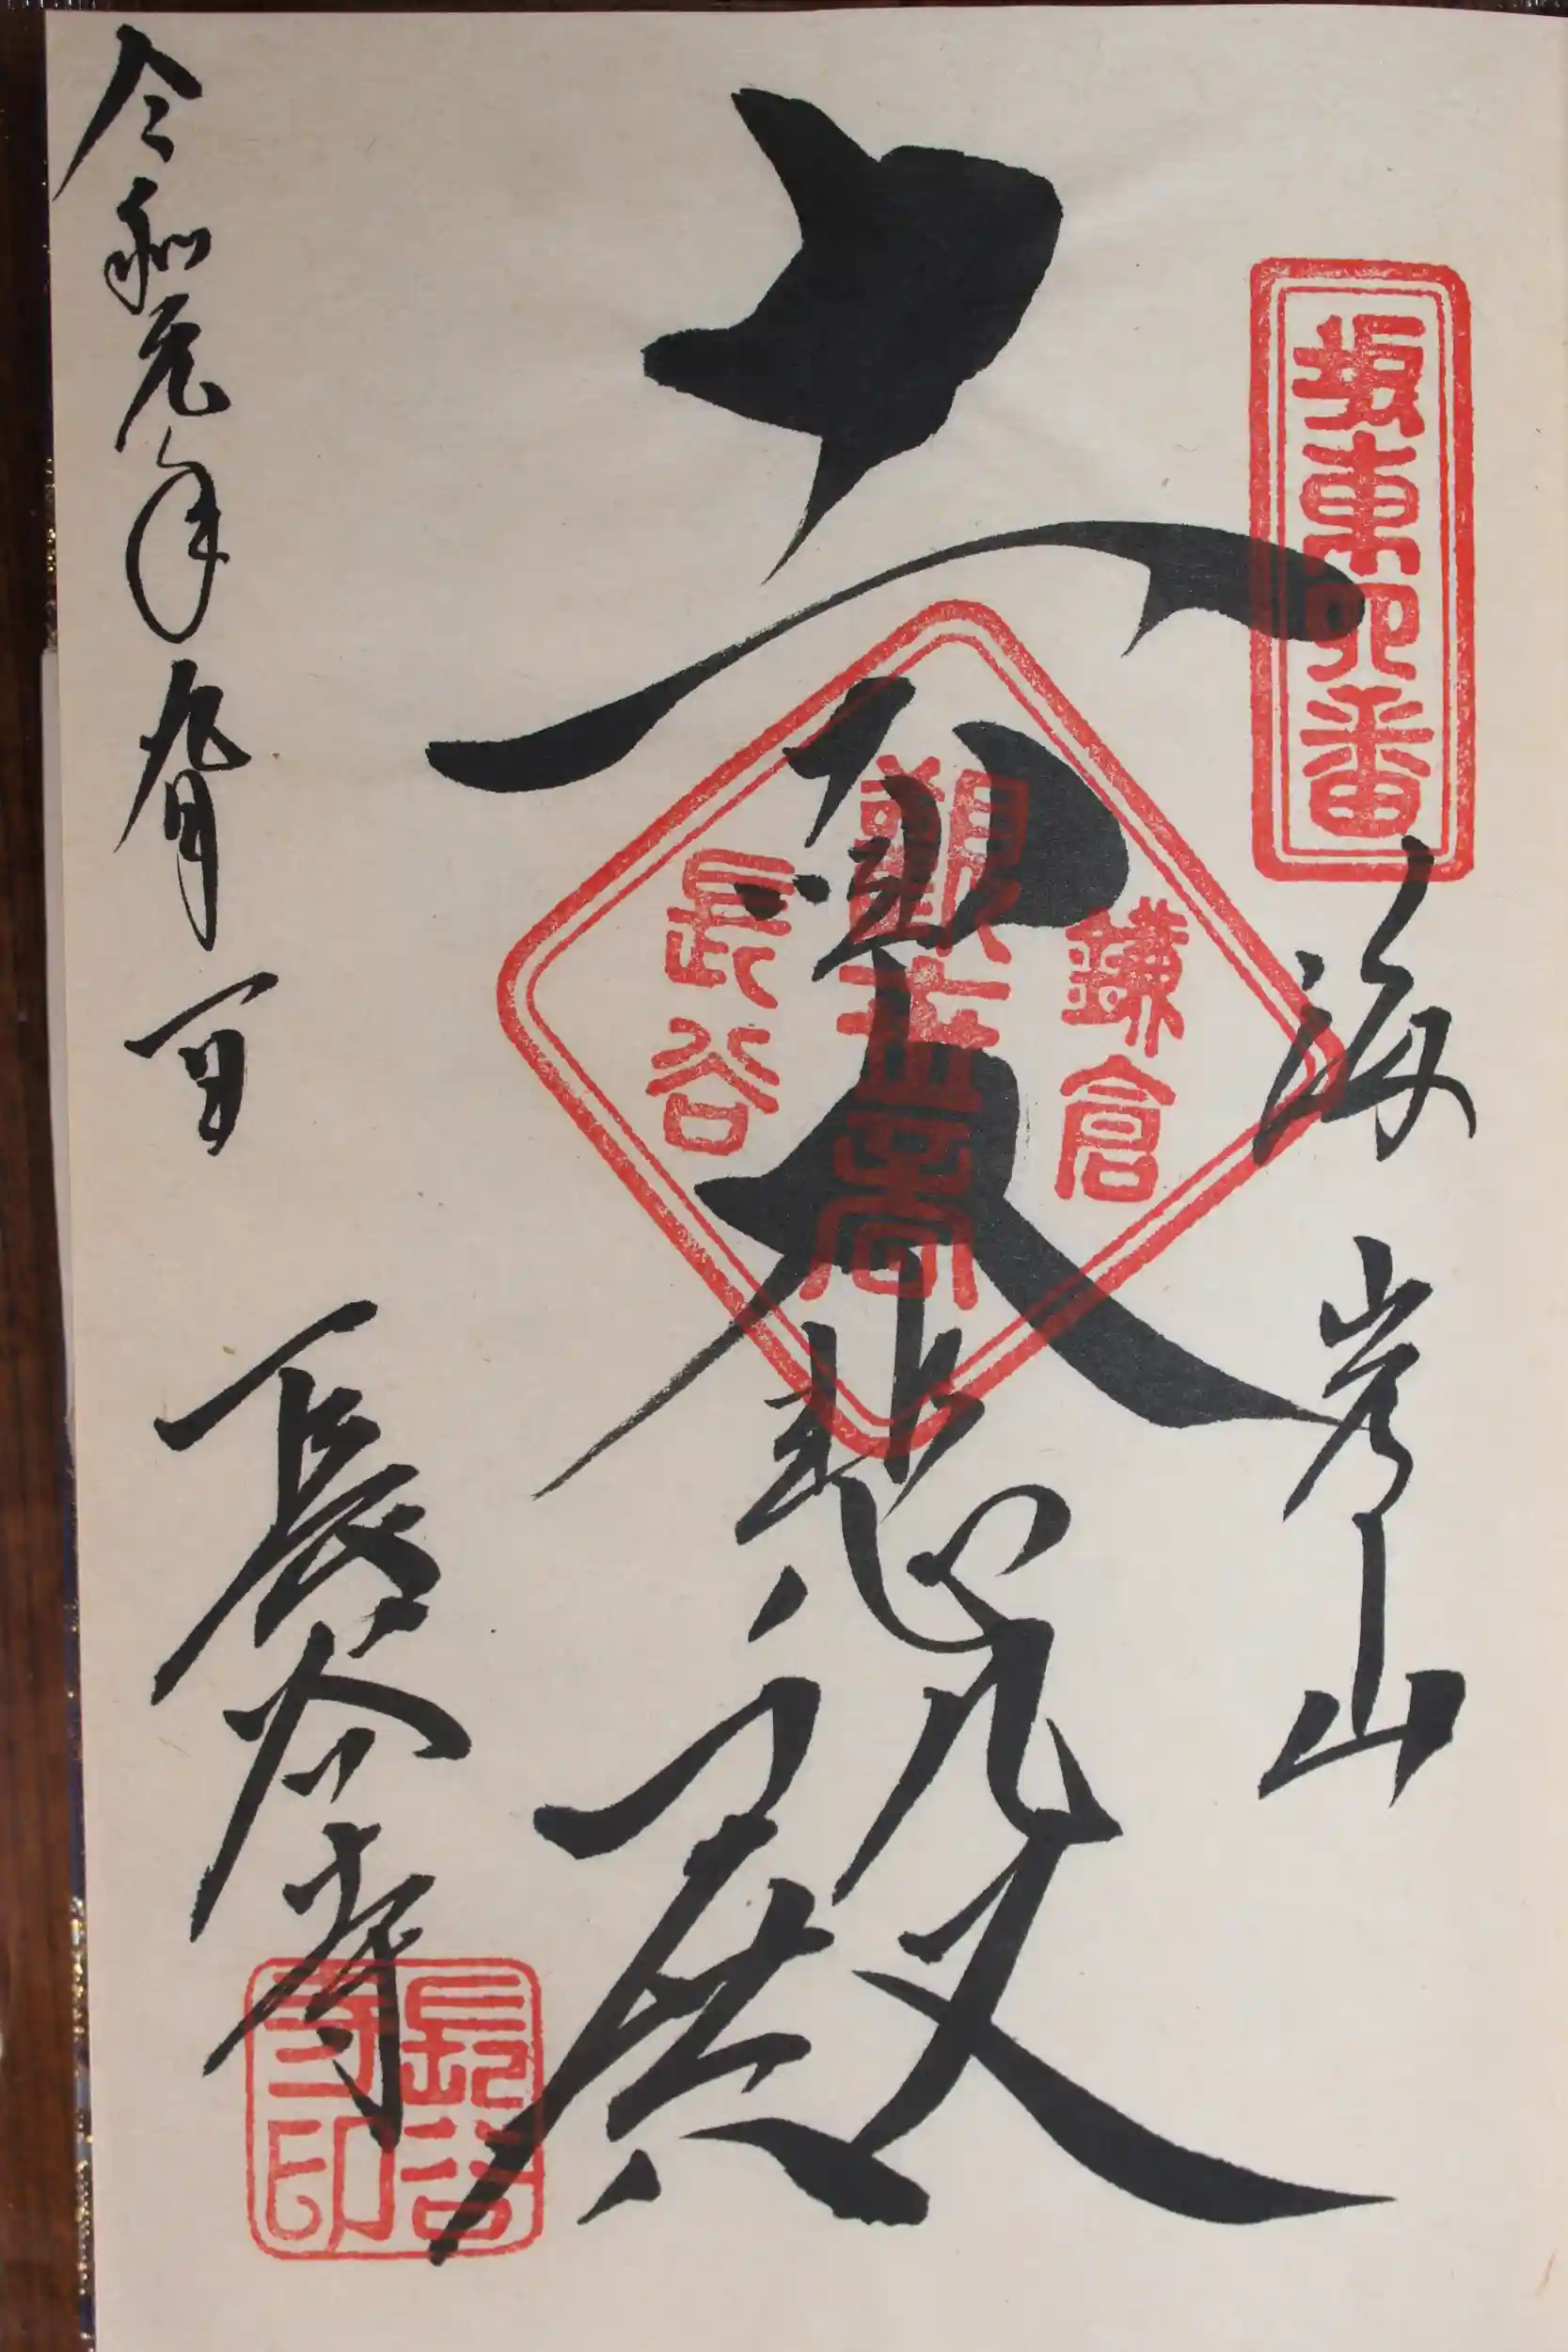 坂東四番
海光山
十一面大悲殿
鎌倉
觀世音
長谷
令和元年九月一日
長谷寺
長谷
寺印